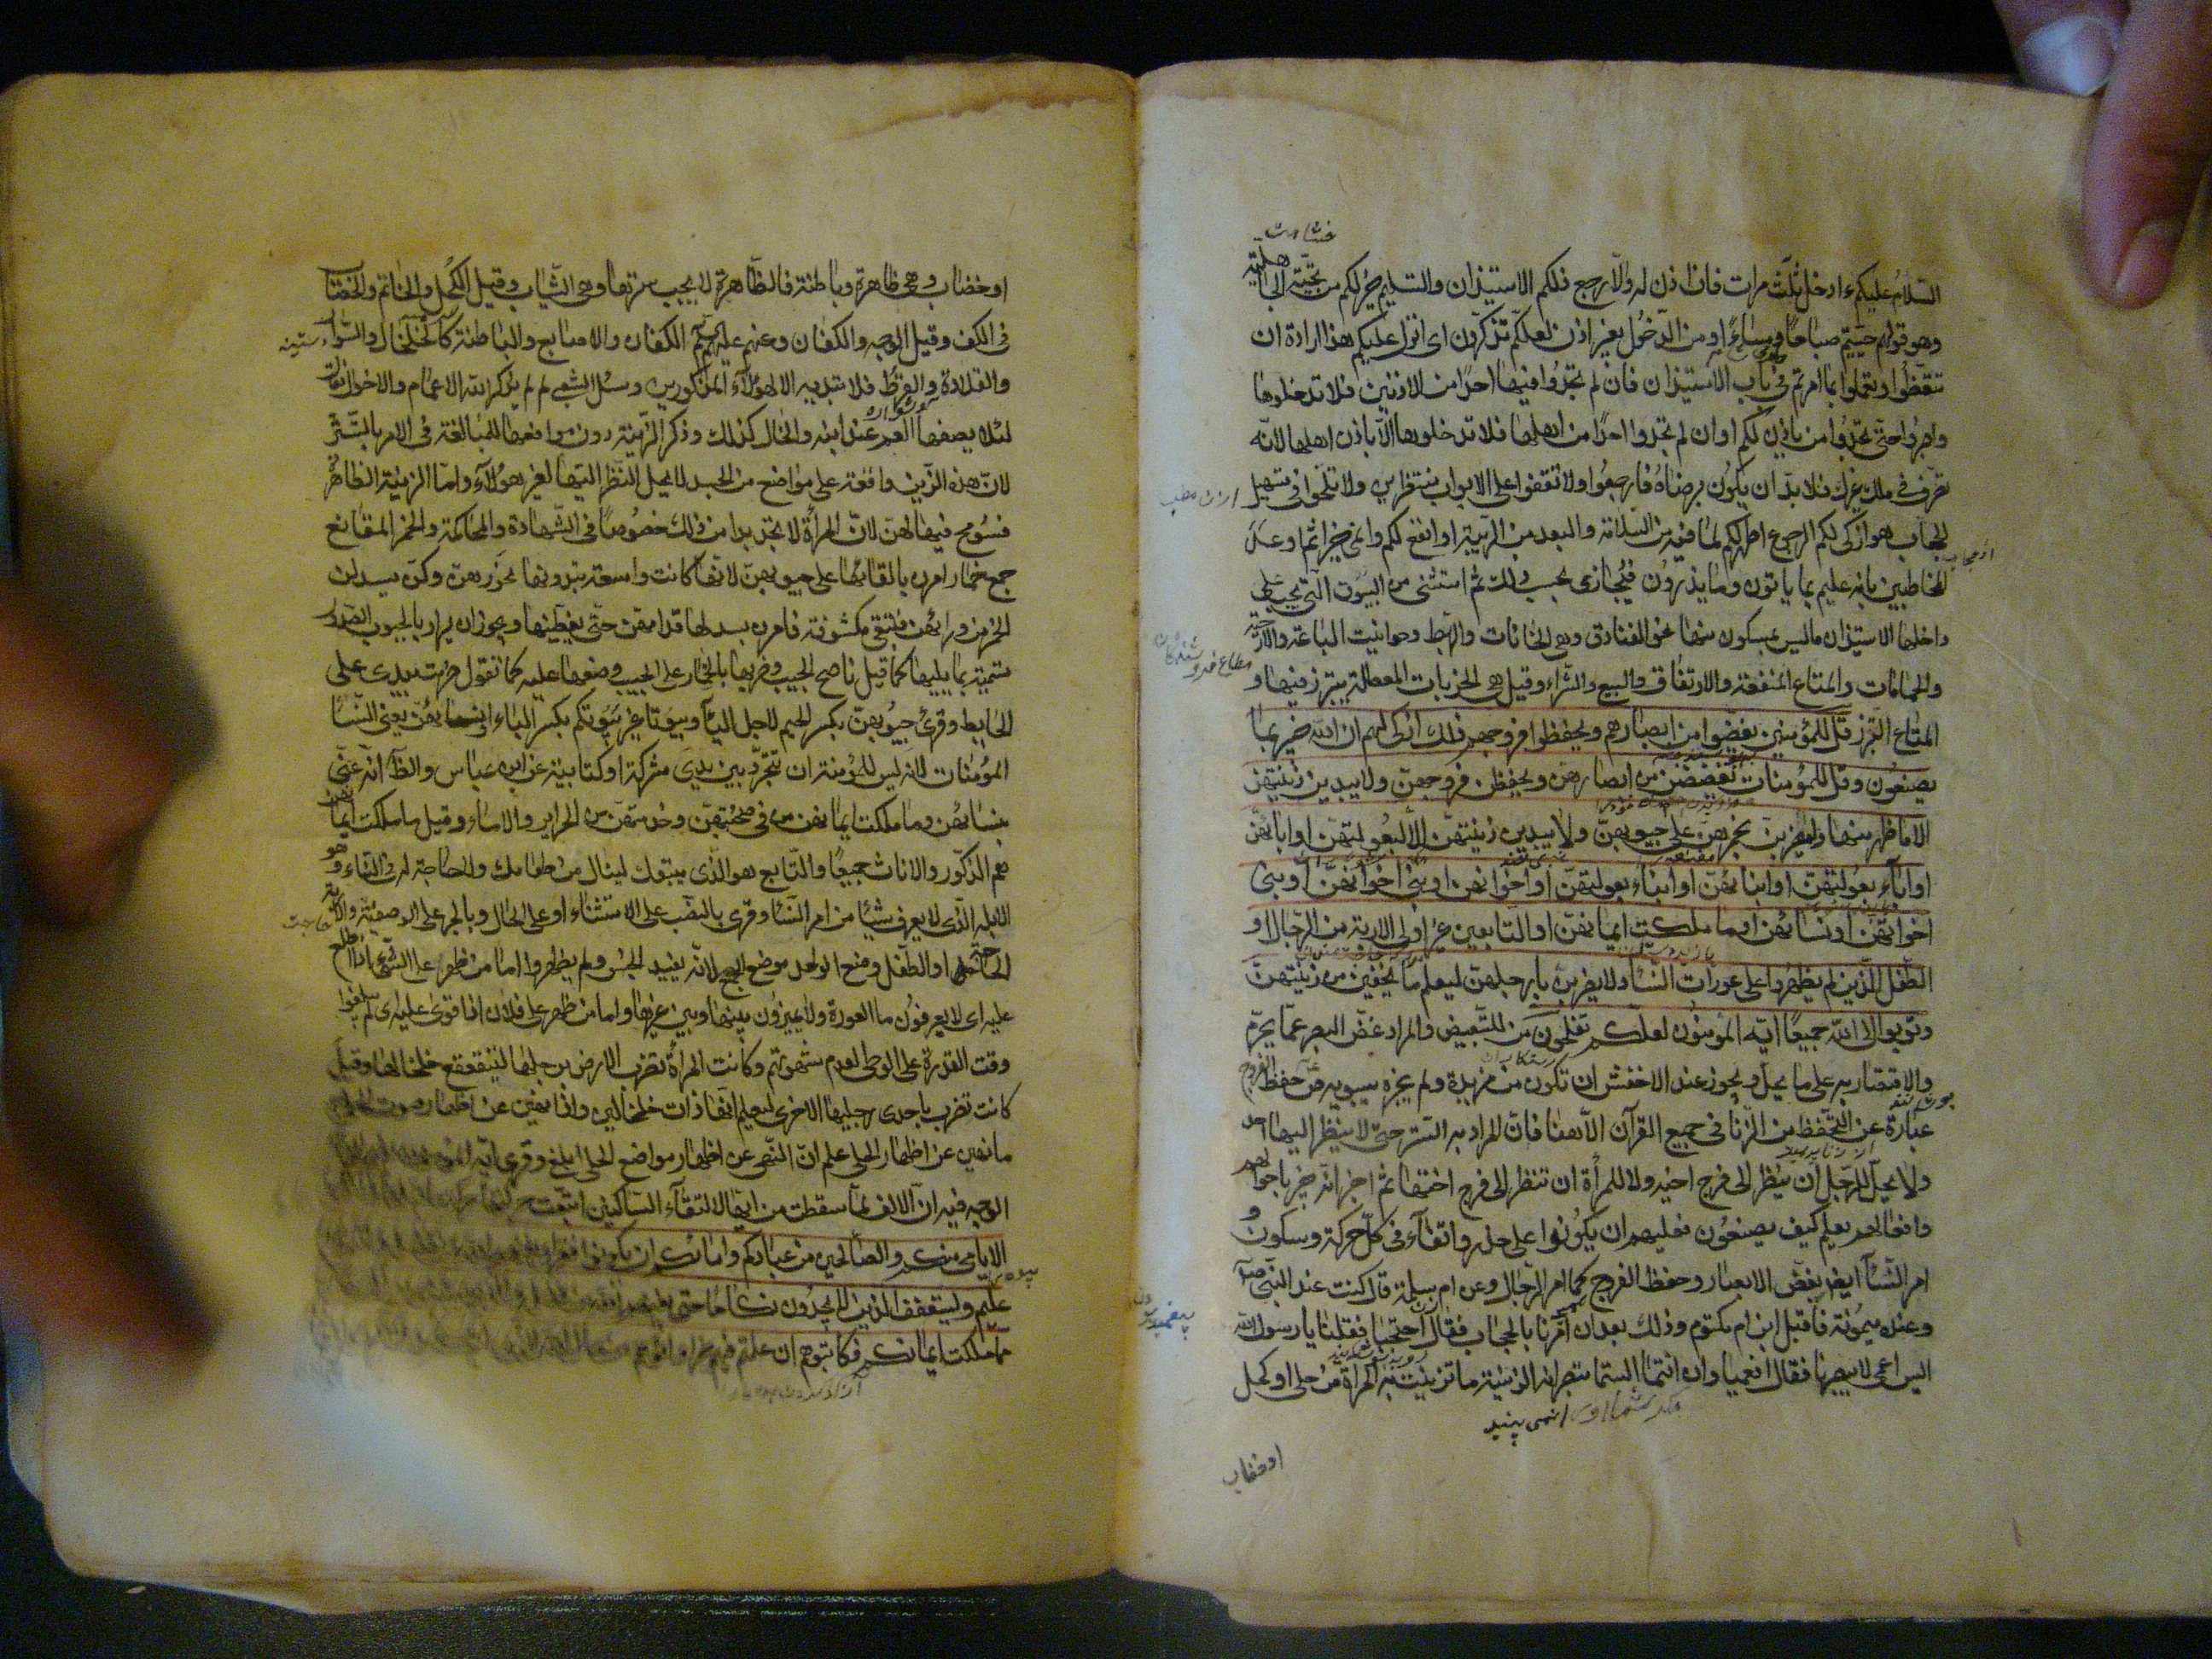 السلام عليكم ءادخل ثلث مرات فان اذن له والا رجع ذلكم الاستيذان والتسليم خير لكم من تحية الجاهلية
وهو قولهم حييتم صباحا ومساء او من الدخول بغير اذن لعلكم تذكرون اى انزل عليكم هذا ارادة ان
تتعظوا وتعملوا بما امرتم فى باب الاستيذان فان لم تجدوا فيها احدا من الاذنين فلا تدخلوها
واصبروا حتى تجدوا من ياذن لكم او ان لم تجدوا احدا من اهلها فلا تدخلوها الا باذن اهلها لانه
تصرف فى ملك غيرك فلا بد ان يكون برضاه فارجعوا ولا تقفوا على الابواب منتظرين ولا تلحوا فى تسهيل
الحجاب هو ازكى لكم الرجوع اطهر لكم لما فيه من السلامة والبعد من الريبة او انفع لكم وانمى خيرا ثم اوعد
المخاطبين بانه عليم بما ياتون وما يذرون فيجازى بحسب ذلك ثم استثنى من البيوت التى يجب على
داخلها الاستيذان ما ليس بمسكون منها نحو الفنادق وهى الخانات والربط وحوانيت الباعة والارحية
والحمامات والمتاع المنفعة والارتفاق والبيع والشراء وقيل هو الخربات المعطلة يتبرز فيها و
المتاع التبرز قل للمؤمنين يغضوا من ابصارهم ويحفظوا فروجهم ذلك ازكى لهم ان الله خبير بما
يصنعون وقل للمؤمنات يغضضن من ابصارهن ويحفظن فروجهن ولا يبدين زينتهن
الا ما ظهر منها وليضربن بخمرهن على جيوبهن ولا يبدين زينتهن الا لبعولتهن او ابائهن
او اباء بعولتهن او ابنائهن او ابناء بعولتهن او اخوانهن او بنى اخوانهن او بنى
اخواتهن او نسائهن او ما ملكت ايمانهن او التابعين غير اولى الاربة من الرجال او
الطفل الذين لم يظهروا على عورات النساء ولا يضربن بارجلهن ليعلم ما يخفين من زينتهن
وتوبوا الى الله جميعا ايه المؤمنون لعلكم تفلحون من للتبعيض والمراد غض البصر عما يحرم
والاقتصار به على ما يحل ويجوز عند الاخفش ان تكون من مزيدة ولم يجزه سيبويه حفظ الفروج
عبارة عن التحفظ من الزنا فى جميع القرآن الا هنا فان المراد به الستر حتى لا ينظر اليها احد
ولا يحل للرجل ان ينظر الى فرج اخيه ولا للمرأة ان تنظر الى فرج اختها ثم اخبر انه خبير باحوالهم
وافعالهم يعلم كيف يصنعون فعليهم ان يكونوا على حذر واتقاء فى كل حركة وسكون و
امر النساء ايضا بغض الابصار وحفظ الفروج كما امر الرجال وعن ام سلمة قال كنت عند النبى
وعنده ميمونة فاقبل ابن ام مكتوم وذلك بعد ان امرنا بالحجاب فقال احتجبا فقلنا يا رسول الله
اليس اعمى لا يبصرنا فقال افعمياوان انتما الستما تبصرانه الزينة ما تزينت به المراة من حلى او كحل
مكر شما او را نمى بينيد
او خضاب
او خضاب وهى ظاهرة وباطنة فالظاهرة لا يجب سترها وهى الثياب وقيل الكحل والخاتم والخضاب
فى الكف وقيل الوجه والكفان وعنهم عليهم الكفان والاصابع والباطنة كالخلخال والسوار
والقلادة والقرط فلا تبديه الا لهؤلاء المذكورين وسئل الشعبى لم لم يذكر الله الاعمام والاخوال فقال
لئلا يصفها العم عند ابنه والخال كذلك وذكر الزينة دون مواضعها للمبالغة فى الامر بالتستر
لان هذه الزين واقعة على مواضع من الجسد لا يحل النظر اليها لغير هؤلاء واما الزينة الظاهرة
فسومح فيها لهن لان المرأة لا تجد بدا من ذلك خصوصا فى الشهادة والمحاكمة والخمر المقانع
جمع خمار امرن بالقائها على جيوبهن لانها كانت واسعة تبدو منها نحورهن وكن يسدلن
الخمر من ورائهن فتبقى مكشوفة فامرن بسدلها قدامهن حتى يغطينها ويجوز ان يراد بالجيوب الصدور
تسمية بما يليها كما قيل ناصح الجيب وضربها بالخمار على الجيب وضعها عليه كما تقول ضربت بيدى على
الحايط وقرئ جيوبهن بكسر الجيم لاجل الياء وبيوتا غير بيوتكم بكسر الباء او نسائهن يعنى النساء
المؤمنات لانه ليس للمؤمنة ان تتجرد بين يدى مشركة او كتابية عن ابن عباس والظاهر انه عنى
بنسائهن وما ملكت ايمانهن من فى صحبتهن وخدمتهن من الحراير والاماء وقيل ما ملكت ايمانهن
هم الذكور والاناث جميعا والتابع هو الذى يتبعك لينال من طعامك ولا حاجة له فى النساء وهو
الابله الذى لا يعرف شيئا من امر النساء وقرى بالنصب على الاستثناء او على الحال وبالجر على الوصفية والاربة
الحاجة او الطفل وضع الواحد موضع الجمع لانه يفيد الجنس ولم يظهروا اما من ظهر على الشىء اذا اطلع
عليه اى لا يعرفون ما العورة ولا يميزون بينها وبين غيرها واما من ظهر على فلان اذا قوى عليه اى لم يبلغوا
وقت القدرة على الوطى لعدم شهوتهم وكانت المرأة تضرب الارض برجلها ليتقعقع خلخالها وقيل
كانت تضرب باحدى رجليها الاخرى ليعلم انها ذات خلخالين واذا نهين عن اظهار صوت الحلى
ما نهين عن اظهار الحلى علم ان النهى عن اظهار مواضع الحلى ابلغ وقرى ايه المؤمنون
الوجه فيه ان الالف لما سقطت من ايها لالتقاء الساكنين اتبعت
الايامى منكم والصالحين من عبادكم وامائكم ان يكونوا
عليم وليستعفف الذين لا يجدون نكاحا حتى
مما ملكت ايمانكم فكاتبوهم ان علمتم فيهم خيرا